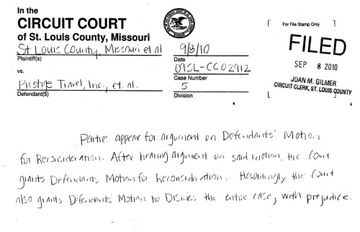 In the
CIRCUIT COURT
of St. Louis County, Missouri
St Louis County, Missouri et al
Plaintiff(s)
vs.
Prestige Travel, Inc., et. al.
Defendant(s)
9/8/10
Date
09SL-CC02912
Case Number
5
Division
For File Stamp Only
FILED
SEP 8 2010
JOAN M. GILMER
CIRCUIT CLERK, ST. LOUIS COUNTY
Parties appear for argument on Defendants' Motion
for Reconsideration. After hearing argument on said motion, the Court
grants Defendants Motion for Reconsideration. Accordingly, the Court
also grants Defendants Motion to Dismiss the entire case, with prejudice.